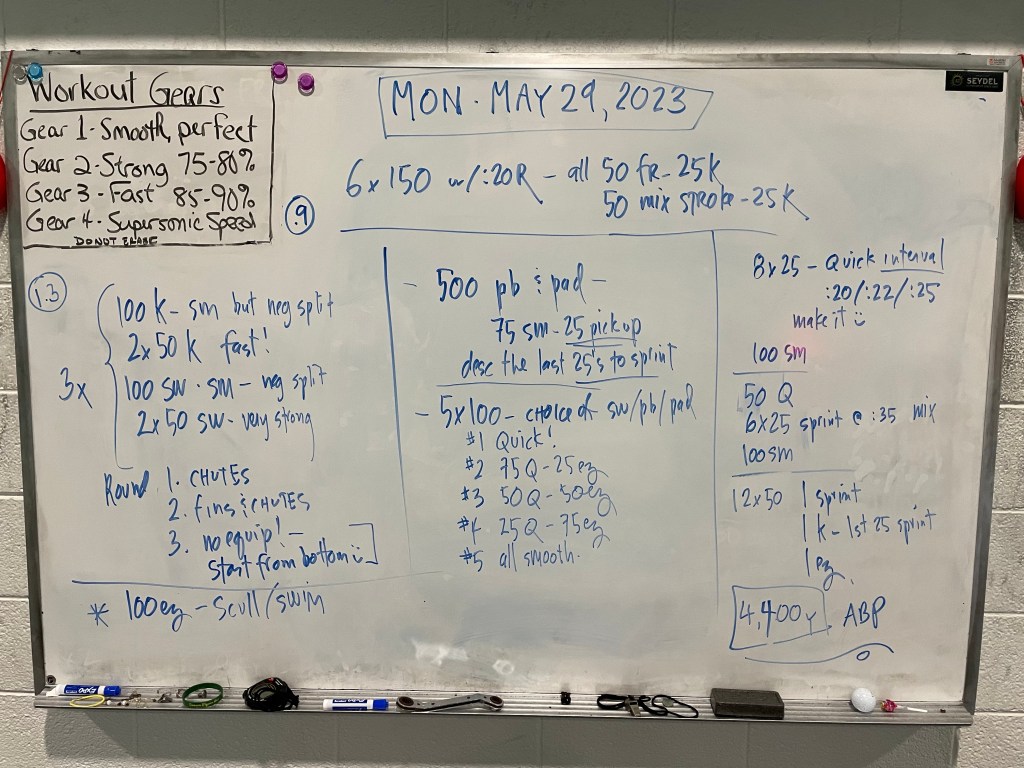 Workout Gears
Gear 1 - Smooth, perfect
Gear 2 - Strong 75-80%
Gear 3 - Fast 85-90%
Gear 4 - Supersonic Speed
DO NOT ERASE
SEYDEL
MON. MAY 29, 2023
6x150 w/:20R - all 50 fr - 25K
50 mix stroke - 25K
.9
1.3
3x
100 K - sm but neg split
2x50 K fast!
100 sw. sm - neg split
2x50 sw - very strong
Round 1. CHUTES
2. fins & CHUTES
3. no equip! -
start from bottom
* 100 ez - Scull/swim
- 500 pb & pad -
75 sm - 25 pick up
desc the last 25's to sprint
- 5x100 - choice of sw/pb/pad
#1 Quick!
#2 75 Q - 25 ez
#3 50 Q - 50 ez
#4 25 Q - 75 ez
#5 all smooth.
8x25 - Quick interval
:20/:22/:25
make it
100 sm
50 Q
6x25 sprint @ :35 mix
100 sm
12x50 1 sprint
1 K - 1st 25 sprint
1 ez
4,400y ABP
EXPO